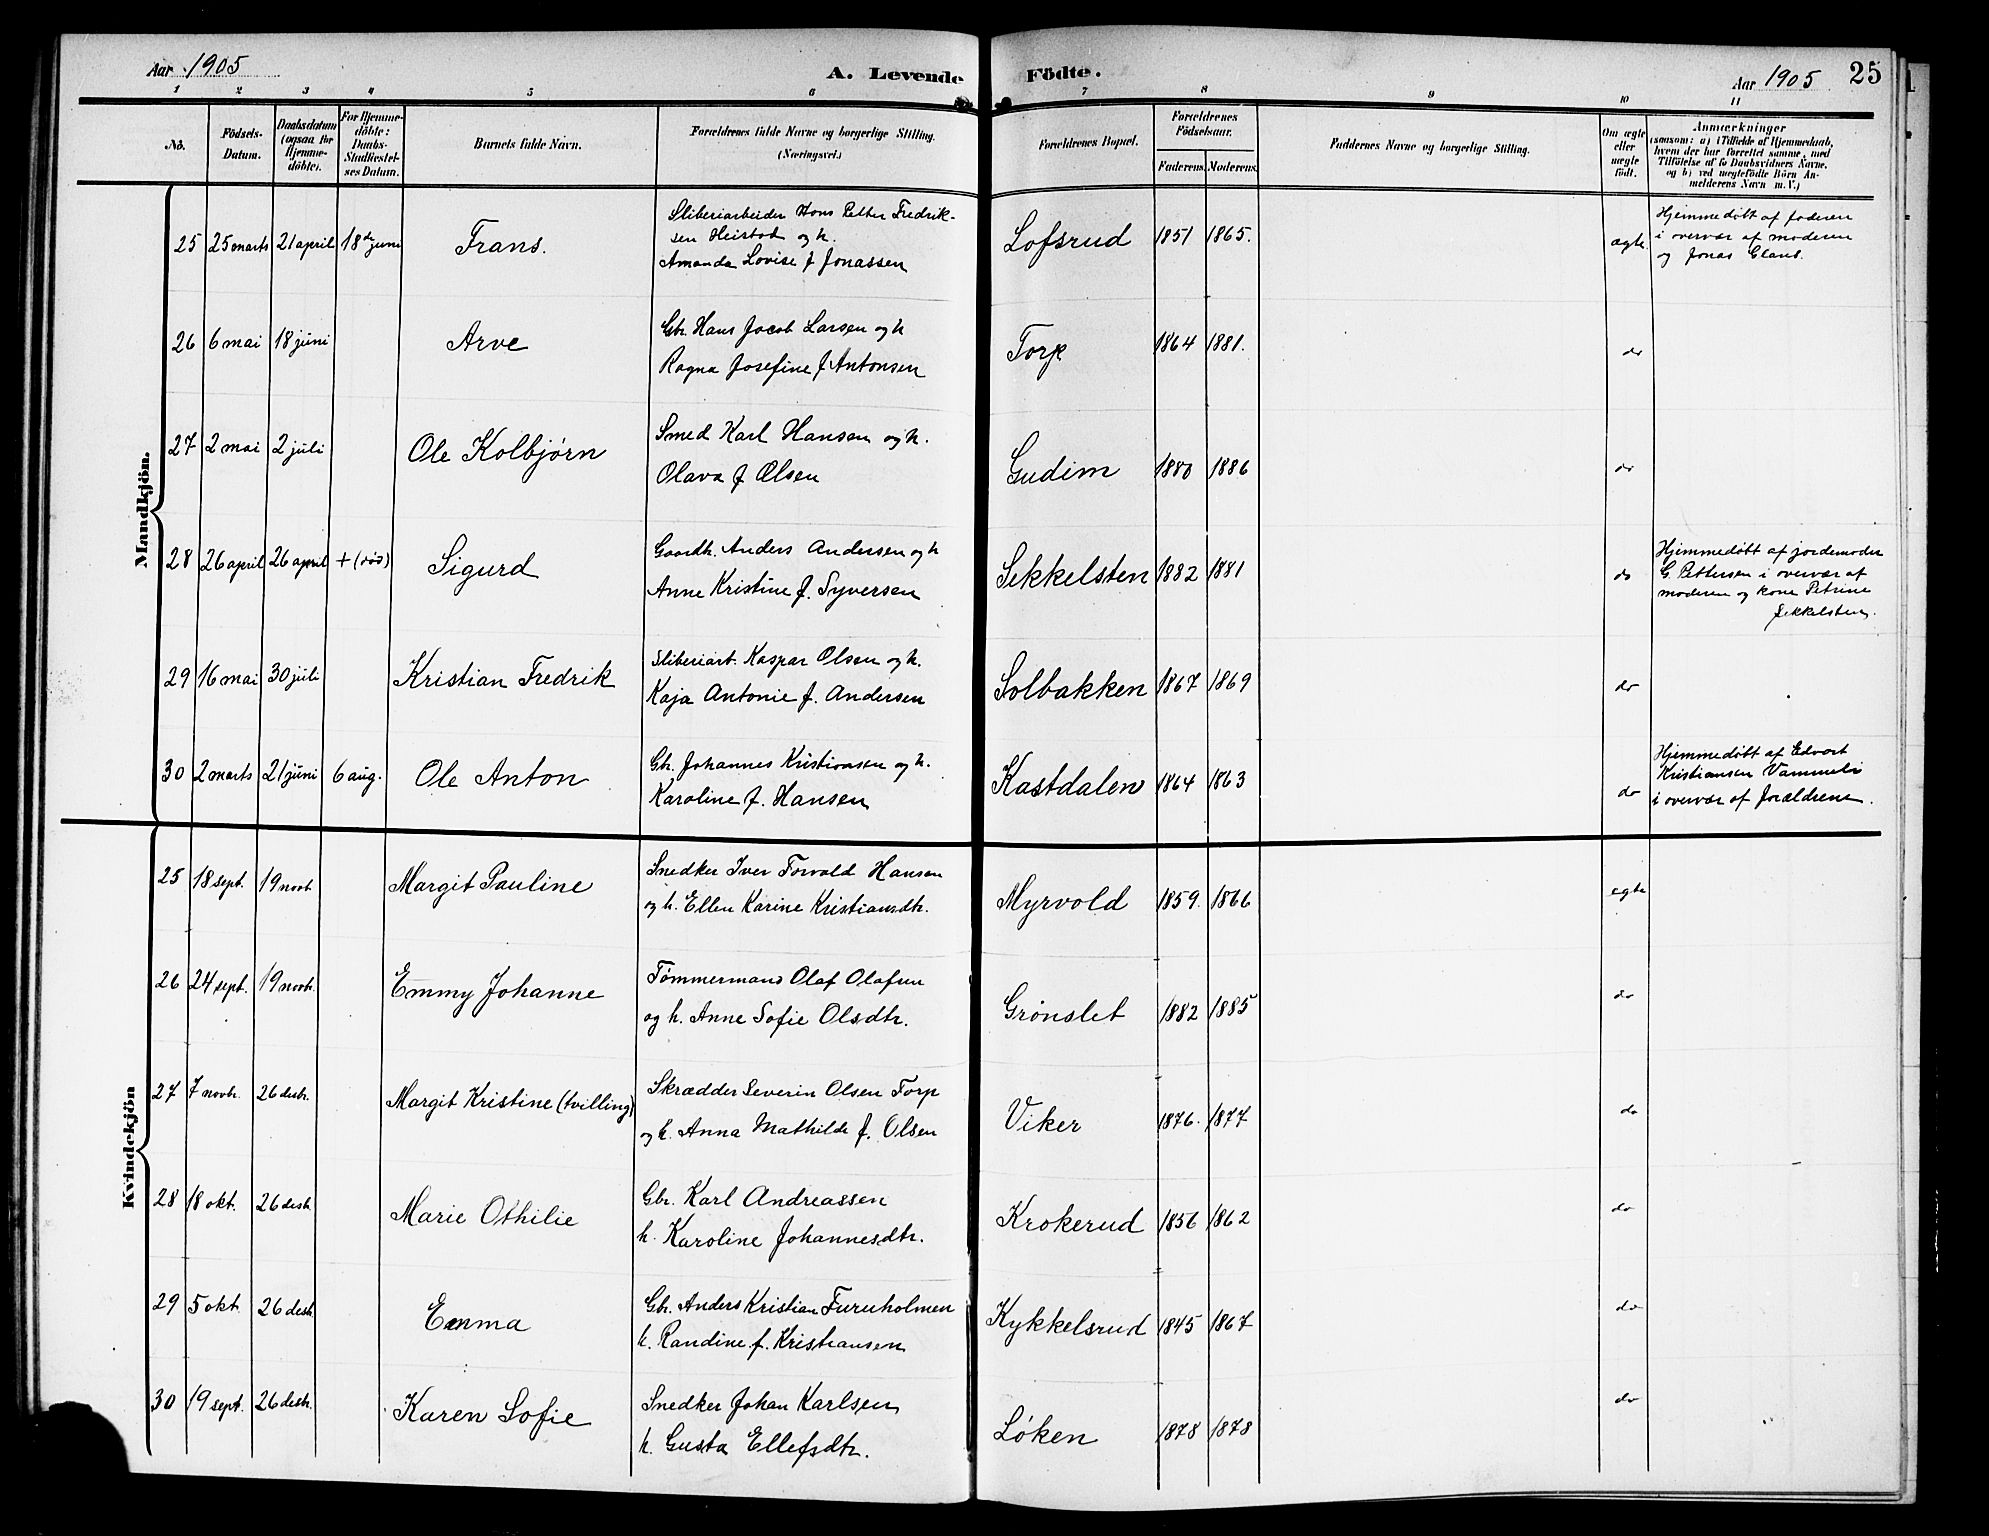 Aar 1905
A. Levende Födte.
Aar 1905
25
1 2 3 4 5 6 7 8 9 10 11
No.
Födsels-
Datum.
Daabsdatum
(ogsaa for
Hjemme-
döbte).
For Hjemme-
döbte:
Daabs-
Stadfæstel-
ses Datum.
Barnets fulde Navn.
Forældrenes fulde Navne og borgerlige Stilling.
(Næringsvei.)
Forældrenes Bopæl.
Forældrenes
Födselsaar.
Faderens. Moderens.
Faddernes Navne og borgerlige Stilling.
Om ægte
eller
uægte
födt.
Anmærkninger
(saasom: a) i Tilfælde af Hjemmedaab,
hvem der har forrettet samme, med
Tilföielse af to Daabsvidners Navne,
og b) ved uægtefödte Börn An-
melderens Navn m. V.)
Mandkjön.
25 25 marts 21 april 18 juni Frans.
Sliberiarbeider Hans Petter Fredrik-
sen Heistad og h.
Amanda Lovise f Jonassen
Lofsrud 1851 1865. ægte
Hjemmedøbt af faderen
i overvær af moderen
og Jonas Glans.
26 6 mai 18 juni Arve
Gbr. Hans Jacob Larsen og h
Ragna Josefine f Antonsen
Torp 1864 1881. do
27 2 mai 2 juli Ole Kolbjørn
Smed Karl Hansen og h.
Olava f Olsen
Gudim 1880 1886 do
28 26 april 26 april + (død) Sigurd
Gaardb. Anders Andersen og h
Anne Kristine f. Syversen
Sekkelsten 1882 1881 do
Hjemmedøbt af jordemoder
G. Pettersen i overvær af
moderen og kone Petrine
Sekkelsten.
29 16 mai 30 juli Kristian Fredrik
Sliberiarb. Kaspar Olsen og h.
Kaja Antonie f. Andersen
Solbakken 1867 1869 do
30 2 marts 21 juni 6 aug. Ole Anton
Gb. Johannes Kristiansen og h.
Karoline f. Hansen
Kastdalen 1864 1863 do
Hjemmedøbt af Edvart
Kristiansen Vammeli
i overvær af forældrene.
Kvindekjön
25 18 sept. 19 novb. Margit Pauline
Snedker Iver Torvald Hansen
og h. Ellen Karine Kristiansdtr.
Myrvold 1859. 1866 egte
26 24 sept. 19 novb. Emmy Johanne
Tømmermand Olaf Olafsen
og h. Anne Sofie Olsdtr.
Grønslet 1882 1885 do
27 7 novb. 26 desb. Margit Kristine (tvilling)
Skrædder Severin Olsen Torp
og h. Anna Mathilde f. Olsen
Viker 1876. 1877 do
28 18 okt. 26 desb. Marie Othilie
Gbr. Karl Andreassen
h. Karoline Johannesdtr.
Krokerud 1856 1862 do
29 5 okt. 26 desb. Emma
Gbr. Anders Kristian Furuholmen
h. Randine f. Kristiansen
Kykkelsrud 1845 1867 do
30 19 sept. 26 desb. Karen Sofie
Snedker Johan Karlsen
h. Gusta Ellefsdtr.
Løken 1878 1878 do